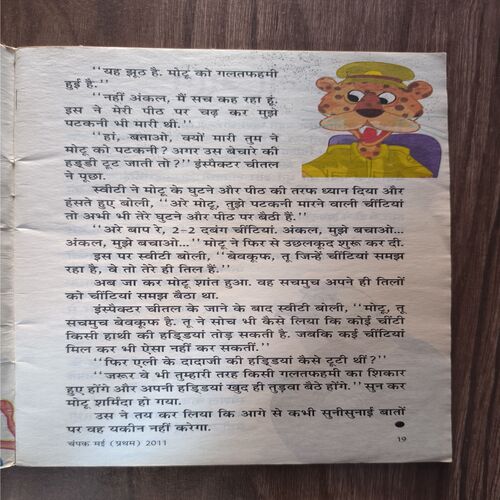 "यह झूठ है. मोटू को गलतफहमी
हुई है."
"नहीं अंकल, मैं सच कह रहा हूं.
इस ने मेरी पीठ पर चढ़ कर मुझे
पटकनी भी मारी थी."
"हां, बताओ, क्यों मारी तुम ने
मोटू को पटकनी? अगर उस बेचारे की
हड्डी टूट जाती तो?" इंस्पैक्टर चीतल
ने पूछा.
स्वीटी ने मोटू के घुटने और पीठ की तरफ ध्यान दिया और
हंसते हुए बोली, "अरे मोटू, तुझे पटकनी मारने वाली चींटियां
तो अभी भी तेरे घुटने और पीठ पर बैठी हैं."
"अरे बाप रे, 2-2 दबंग चींटियां. अंकल, मुझे बचाओ...
अंकल, मुझे बचाओ..." मोटू ने फिर से उछलकूद शुरू कर दी.
इस पर स्वीटी बोली, "बेवकूफ, तू जिन्हें चींटियां समझ
रहा है, वे तो तेरे ही तिल हैं."
अब जा कर मोटू शांत हुआ. वह सचमुच अपने ही तिलों
को चींटियां समझ बैठा था.
इंस्पैक्टर चीतल के जाने के बाद स्वीटी बोली, "मोटू, तू
सचमुच बेवकूफ है. तू ने सोच भी कैसे लिया कि कोई चींटी
किसी हाथी की हड्डियां तोड़ सकती है. जबकि कई चींटियां
मिल कर भी ऐसा नहीं कर सकतीं."
"फिर एली के दादाजी की हड्डियां कैसे टूटी थीं?"
"जरूर वे भी तुम्हारी तरह किसी गलतफहमी का शिकार
हुए होंगे और अपनी हड्डियां खुद ही तुड़वा बैठे होंगे." सुन कर
मोटू शर्मिंदा हो गया.
उस ने तय कर लिया कि आगे से कभी सुनीसुनाई बातों
पर वह यकीन नहीं करेगा.
चंपक मई (प्रथम) 2011
19